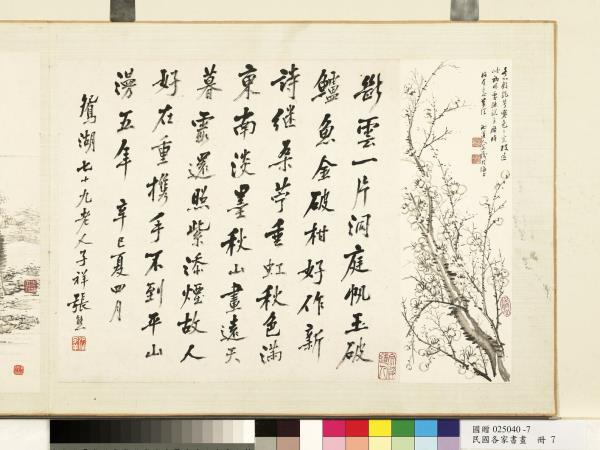 斷雲一片洞庭帆玉破
鱸魚金破柑好作新
詩繼桑苧垂虹秋色滿
東南淡墨秋山畫遠天
暮霞還照紫添煙故人
好在重攜手不到平山
漫五年 辛巳夏四月
鴛湖七十九老人子祥張熊
國贈 025040 -7
民國各家書畫 冊 7